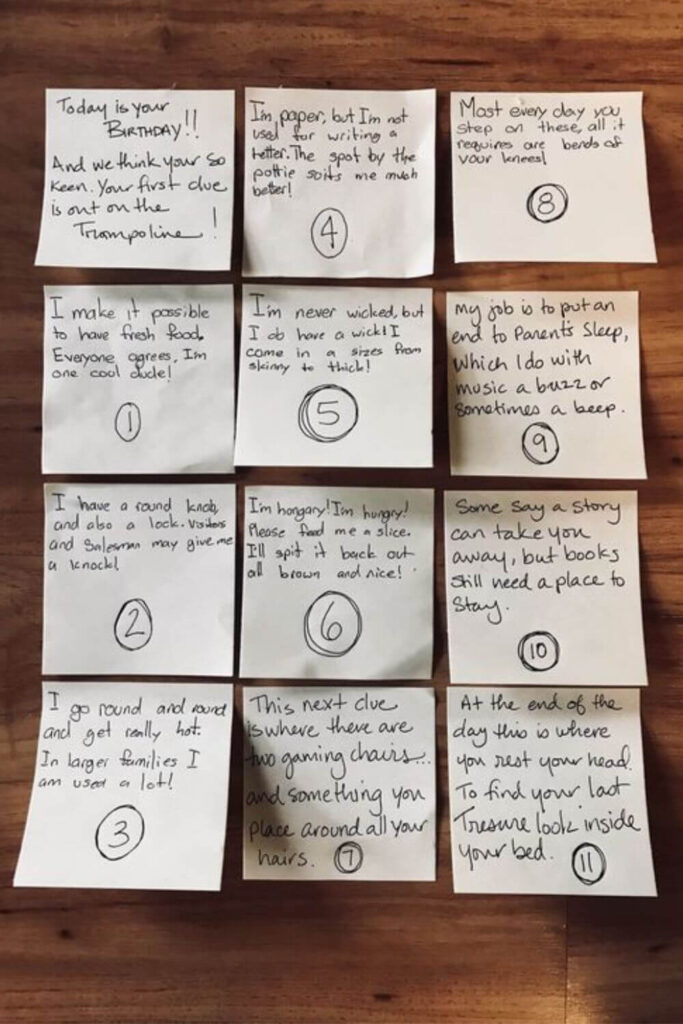 Today is your
BIRTHDAY!!
And we think your so
keen. Your first clue
is out on the
Trampoline!
I make it possible
to have fresh food.
Everyone agrees, I'm
one cool dude!
1
I have a round knob,
and also a lock. Visitors
and Salesman may give me
a knock!
2
I go round and round
and get really hot.
In larger families I
am used a lot!
3
I'm paper, but I'm not
used for writing a
letter. The spot by the
pottie suits me much
better!
4
I'm never wicked, but
I do have a wick! I
come in a sizes from
skinny to thick!
5
I'm hongary! I'm hungry!
Please feed me a slice.
I'll spit it back out
all brown and nice!
6
This next clue
is where there are
two gaming chairs...
and something you
place around all your
hairs. 7
Most every day you
step on these, all it
requires are bends of
your knees!
8
My job is to put an
end to Parent's Sleep,
Which I do with
music a buzz or
sometimes a beep.
9
Some say a story
can take you
away, but books
still need a place to
stay.
10
At the end of the
day this is where
you rest your head.
To find your last
Tresure look inside
your bed. 11